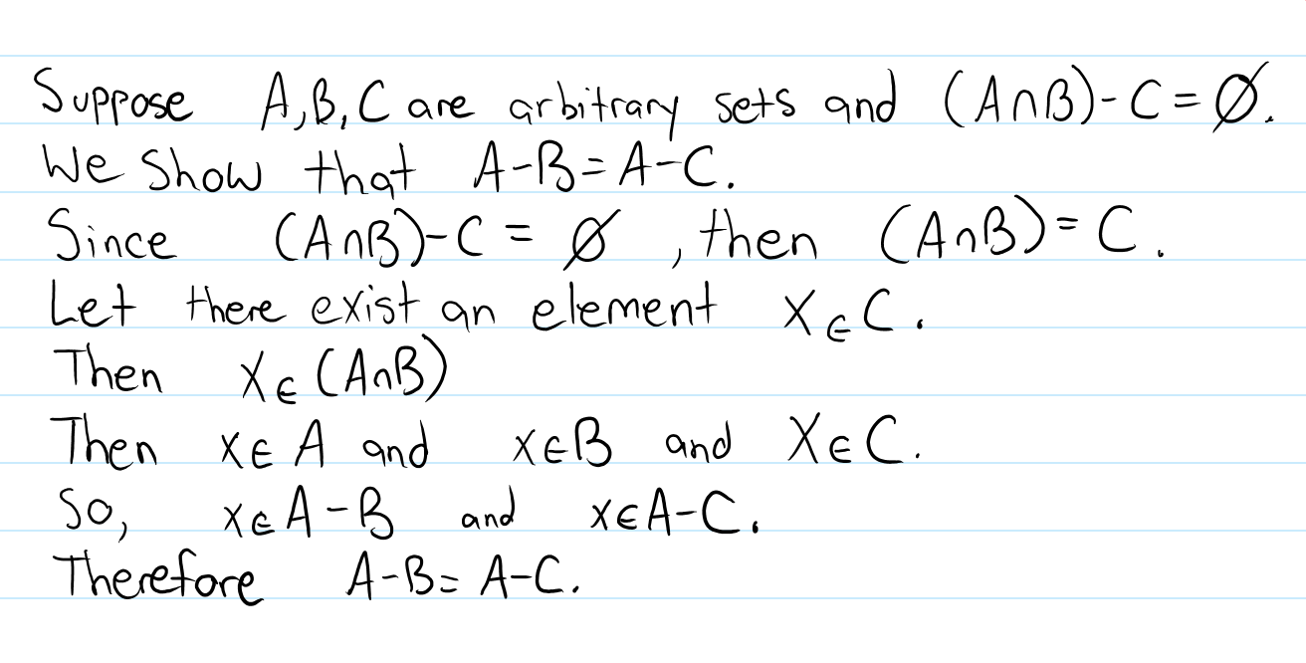 Suppose A,B,C are arbitrary sets and (A∩B)-C=∅.
We Show that A-B=A-C.
Since (A∩B)-C = ∅ , then (A∩B)=C.
Let there exist an element X∈C.
Then X∈(A∩B)
Then x∈A and x∈B and X∈C.
So, x∈A-B and x∈A-C.
Therefore A-B=A-C.